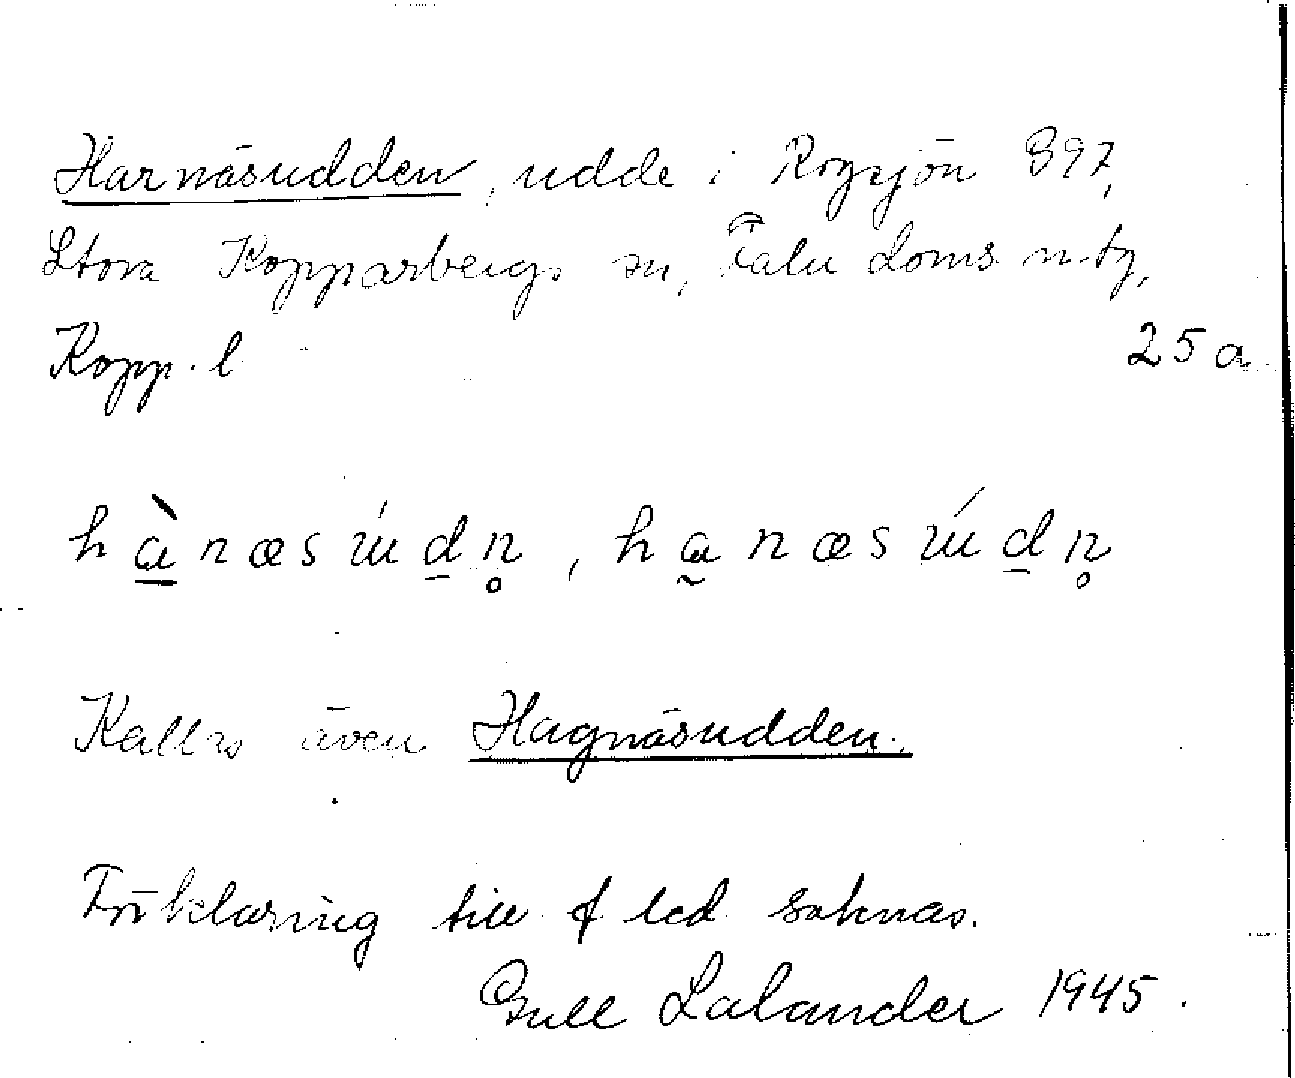 Harnäsudden, udde i Rogsjön 897,
Stora Kopparbergs sn, Falu Doms. ntg,
Kopp. l
25 a
hànæsúdn̥, hanæsúdn̥
Kallas även Hagnäsudden.
Förklaring till f led saknas.
Gull Lalander 1945.